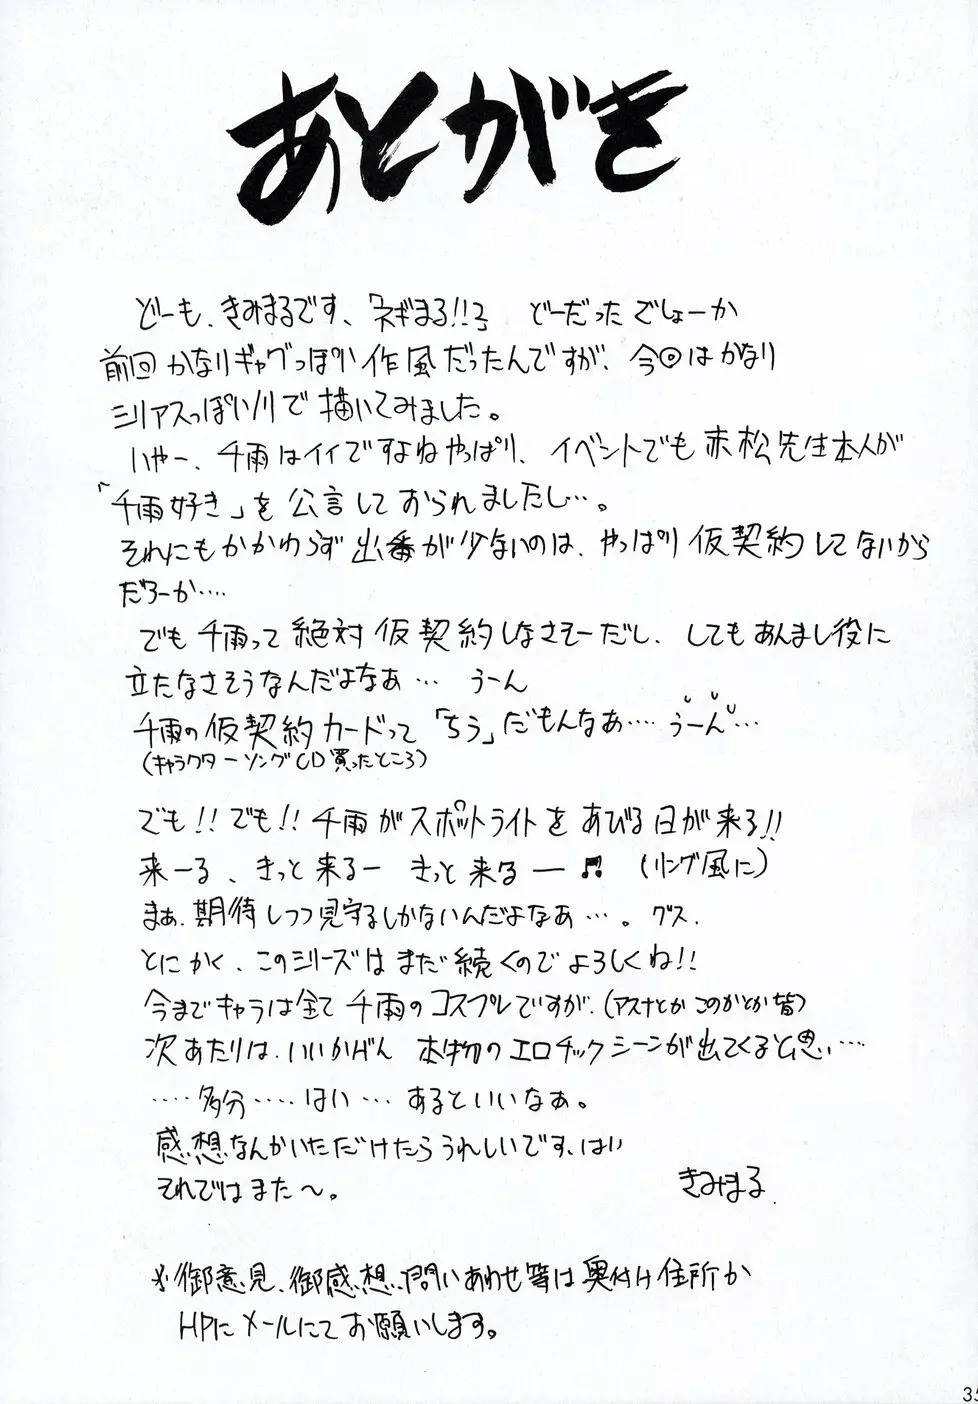 あとがき
どーも、きみまるです、「ネギまる!!」 どーだったでしょーか
前回かなりギャグっぽい作風だったんですが、今回はかなり
シリアスっぽいノリで描いてみました。
いやー、千雨はイイですよねやっぱり、イベントでも赤松先生本人が
「千雨好き」を公言しておられましたし…。
それにもかかわらず出番が少ないのは、やっぱり仮契約してないから
だろーか‥‥
でも千雨って絶対仮契約しなさそーだし、してもあんまし役に
立たなさそうなんだよなあ… うーん
千雨の仮契約カードって「ちう」だもんなあ‥‥うーん…
(キャラクターソングCD買ったところ)
でも!!でも!!千雨がスポットライトをあびる日が来る!!
来ーる、きっと来るー きっと来るー♬ (リング風に)
まぁ、期待しつつ見守るしかないんだよなあ…。グス.
とにかく、このシリーズはまだ続くのでよろしくね!!
今までキャラは全て千雨のコスプレですが、(アスナとかこのかとか皆)
次あたりは、いいかげん本物のエロチックシーンが出てくると思い…
‥‥多分‥‥はい…あるといいなぁ。
感想なんかいただけたらうれしいです、はい
それではまた〜。
きみまる
※御意見、御感想、問いあわせ等は奥付け住所か
HPにメールにてお願いします。
35